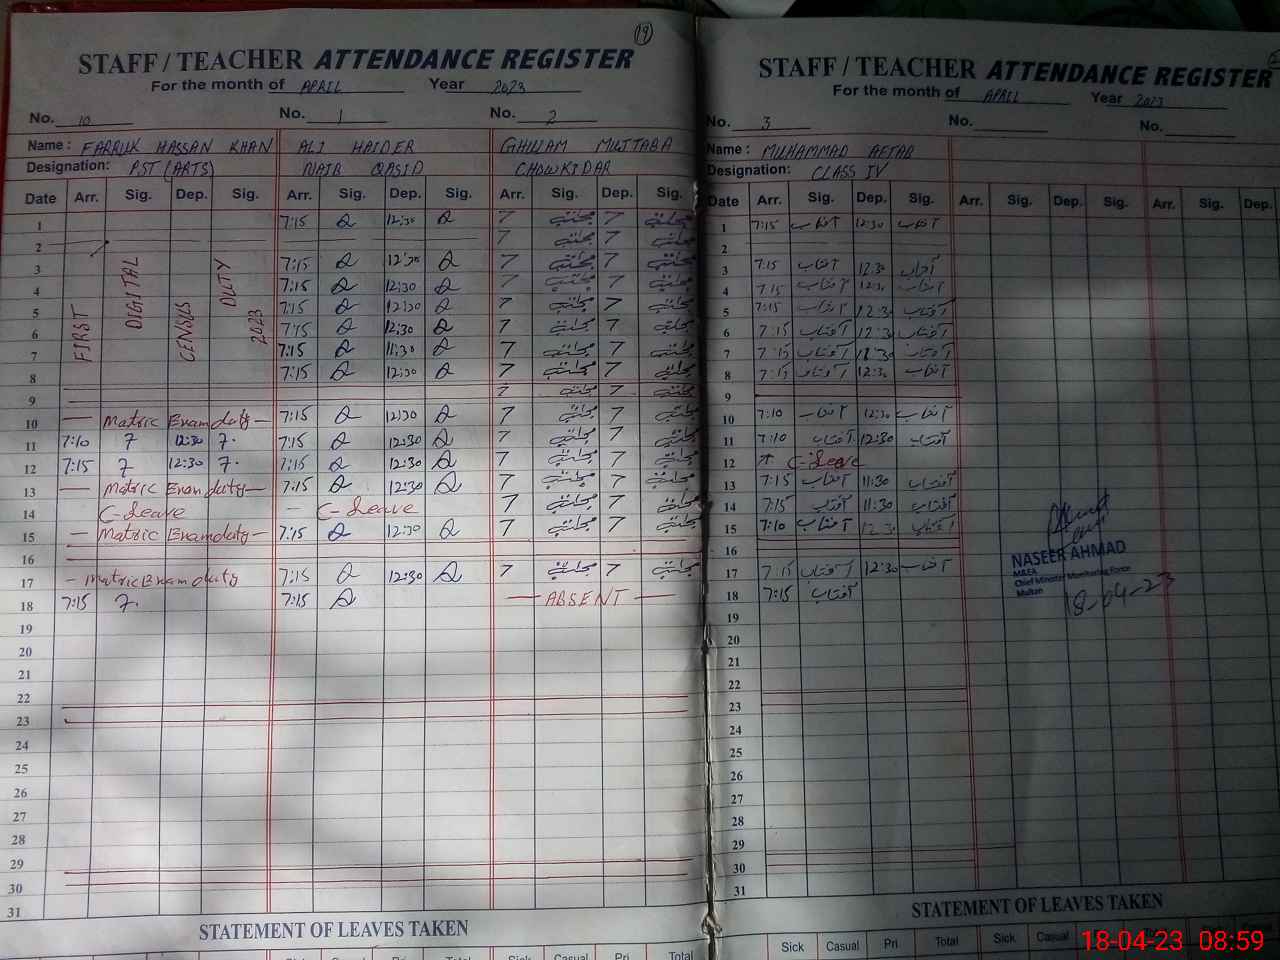 19
STAFF / TEACHER ATTENDANCE REGISTER
For the month of APRIL Year 2023
No. 10 No. 1 No. 2
Name : FARRUK HASSAN KHAN ALI HAIDER GHULAM MUJTABA
Designation: PST (ARTS) NAIB QASID CHOWKIDAR
Date Arr. Sig. Dep. Sig. Arr. Sig. Dep. Sig. Arr. Sig. Dep. Sig.
FIRST DIGITAL CENSUS DUTY 2023
1 7:15 12:30 7 مجتبیٰ 7 مجتبیٰ
2 7 مجتبیٰ 7 مجتبیٰ
3 7:15 12:30 7 مجتبیٰ 7 مجتبیٰ
4 7:15 12:30 7 مجتبیٰ 7 مجتبیٰ
5 7:15 12:30 7 مجتبیٰ 7 مجتبیٰ
6 7:15 12:30 7 مجتبیٰ 7 مجتبیٰ
7 7:15 11:30 7 مجتبیٰ 7 مجتبیٰ
8 7:15 12:30 7 مجتبیٰ 7 مجتبیٰ
9 7 مجتبیٰ 7 مجتبیٰ
10 — Matric Exam duty — 7:15 12:30 7 مجتبیٰ 7 مجتبیٰ
11 7:10 12:30 7:15 12:30 7 مجتبیٰ 7 مجتبیٰ
12 7:15 12:30 7:15 12:30 7 مجتبیٰ 7 مجتبیٰ
13 — Matric Exam duty — 7:15 12:30 7 مجتبیٰ 7 مجتبیٰ
14 C-Leave — C-Leave 7 مجتبیٰ 7 مجتبیٰ
15 — Matric Exam duty — 7:15 12:30 7 مجتبیٰ 7 مجتبیٰ
16
17 — Matric Exam duty 7:15 12:30 7 مجتبیٰ 7 مجتبیٰ
18 7:15 7:15 — ABSENT —
19
20
21
22
23
24
25
26
27
28
29
30
31
STATEMENT OF LEAVES TAKEN
Sick Casual Pri Total
STAFF / TEACHER ATTENDANCE REGISTER
For the month of APRIL Year 2023
No. 3 No. No.
Name : MUHAMMAD AFTAB
Designation: CLASS IV
Date Arr. Sig. Dep. Sig. Arr. Sig. Dep. Sig. Arr. Sig. Dep.
1 7:15 آفتاب 12:30 آفتاب
2
3 7:15 آفتاب 12:30 آفتاب
4 7:15 آفتاب 12:30 آفتاب
5 7:15 آفتاب 12:30 آفتاب
6 7:15 آفتاب 12:30 آفتاب
7 7:15 آفتاب 11:30 آفتاب
8 7:15 آفتاب 12:30 آفتاب
9
10 7:10 آفتاب 12:30 آفتاب
11 7:10 آفتاب 12:30 آفتاب
12 C-Leave
13 7:15 آفتاب 11:30 آفتاب
14 7:15 آفتاب 11:30 آفتاب
15 7:10 آفتاب 12:30 آفتاب
16
17 7:15 آفتاب 12:30 آفتاب
18 7:15 آفتاب
19
20
21
22
23
24
25
26
27
28
29
30
31
NASEER AHMAD
M&EA
Chief Minister Monitoring Force
Multan
18-04-23
STATEMENT OF LEAVES TAKEN
Sick Casual Pri Total Sick Casual
18-04-23 08:59